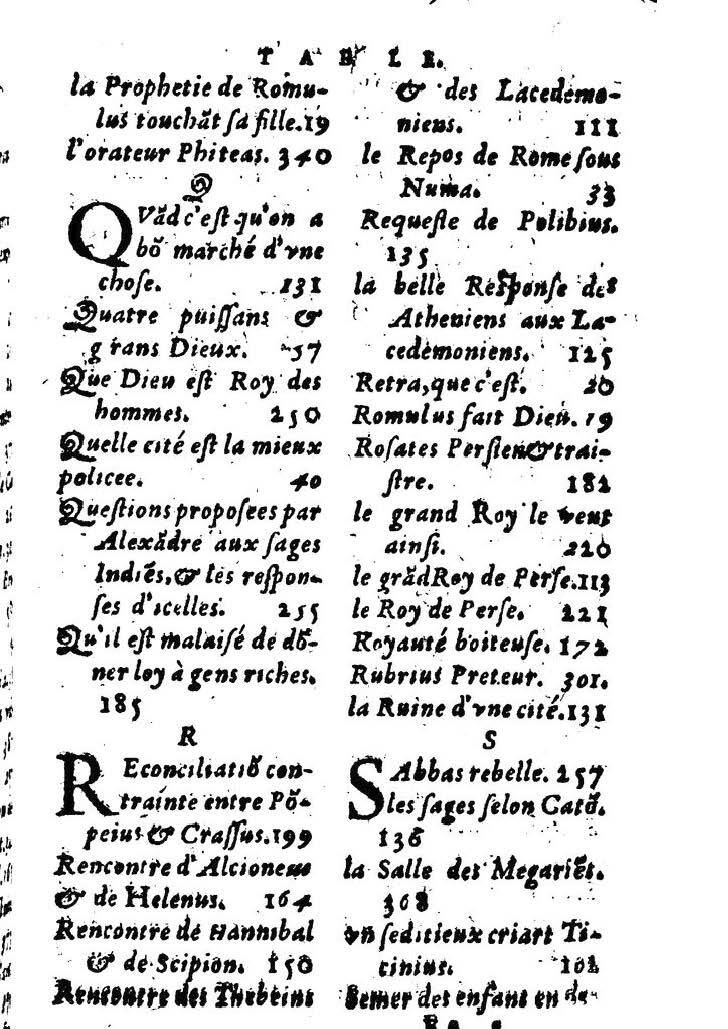 TABLE.
la Prophetie de Romu-
lus touchāt ſa fille. 19
l'orateur Phiteas. 340
Q
QVād c'eſt qu'on a
bō marché d'vne
choſe. 131
Quatre puiſſans &
grans Dieux. 57
Que Dieu eſt Roy des
hommes. 250
Quelle cité eſt la mieux
policee. 40
Queſtions propoſees par
Alexādre aux ſages
Indiēs, & les reſpon-
ſes d'icelles. 255
Qu'il eſt malaiſé de dō-
ner loy à gens riches.
185
R
REconciliatiō con-
trainte entre Pō-
peius & Craſſus. 199
Rencontre d'Alcioneus
& de Helenus. 164
Rencontre de Hannibal
& de Scipion. 150
Rencontre des Thebeins
& des Lacedemo-
niens. 111
le Repos de Rome ſous
Numa. 33
Requeſte de Polibius.
135
la belle Reſponſe des
Atheniens aux La-
cedemoniens. 125
Retra, que c'eſt. 20
Romulus fait Dieu. 19
Roſates Perſien & trai-
ſtre. 182
le grand Roy le veut
ainſi. 220
le grād Roy de Perſe. 113
le Roy de Perſe. 221
Royauté boiteuſe. 172
Rubrius Preteur. 301.
la Ruine d'vne cité. 131
S
SAbbas rebelle. 257
les ſages ſelon Catō.
136
la Salle des Megariēs.
368
vn ſeditieux criart Ti-
cinius. 102
Semer des enfant en